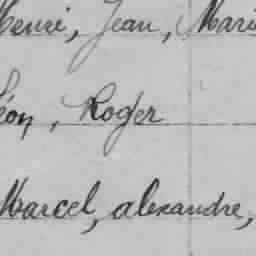 Henri, Jean, Mari
Léon, Roger
Marcel, alexandre,